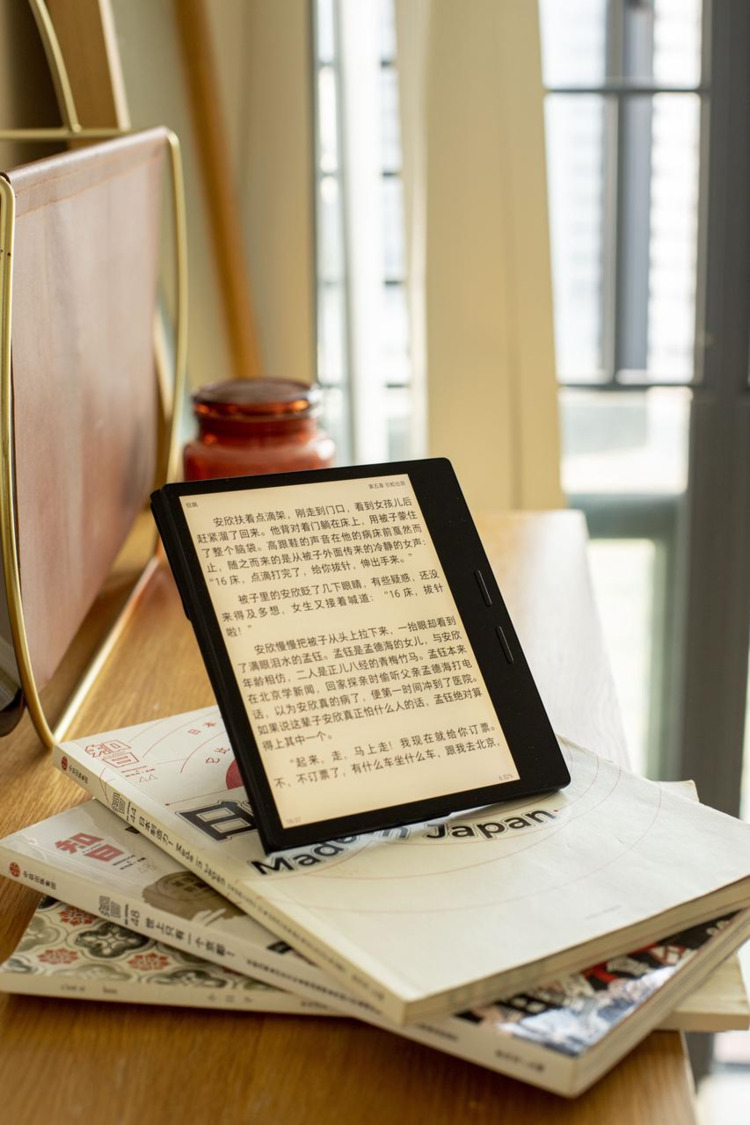 狂飙
第五章 忘舵出局
安欣扶着点滴架，刚走到门口，看到女孩儿后
赶紧溜了回来。他背对着门躺在床上，用被子蒙住
了整个脑袋。高跟鞋的声音在他的病床前戛然而
止，随之而来的是从被子外面传来的冷静的女声：
“16 床，点滴打完了，给你拔针，伸出手来。”
被子里的安欣眨了几下眼睛，有些疑惑，还没
来得及多想，女生又接着喊道：“16 床，拔针
啦！”
安欣慢慢把被子从头上拉下来，一抬眼却看到
了满眼泪水的孟钰。孟钰是孟德海的女儿，与安欣
年龄相仿，二人是正儿八经的青梅竹马。孟钰本来
在北京学新闻，回家探亲时偷听父亲孟德海打电
话，以为安欣真的病了，便第一时间冲到了医院。
如果说这辈子安欣真正怕什么人的话，孟钰绝对算
得上其中一个。
“起来，走，马上走！我现在就给你订票。
不，不订票了，有什么车坐什么车，跟我去北京，
日本
Made in Japan
知日
44 日本制造力！Made in Japan
48 世上只有一个京都！